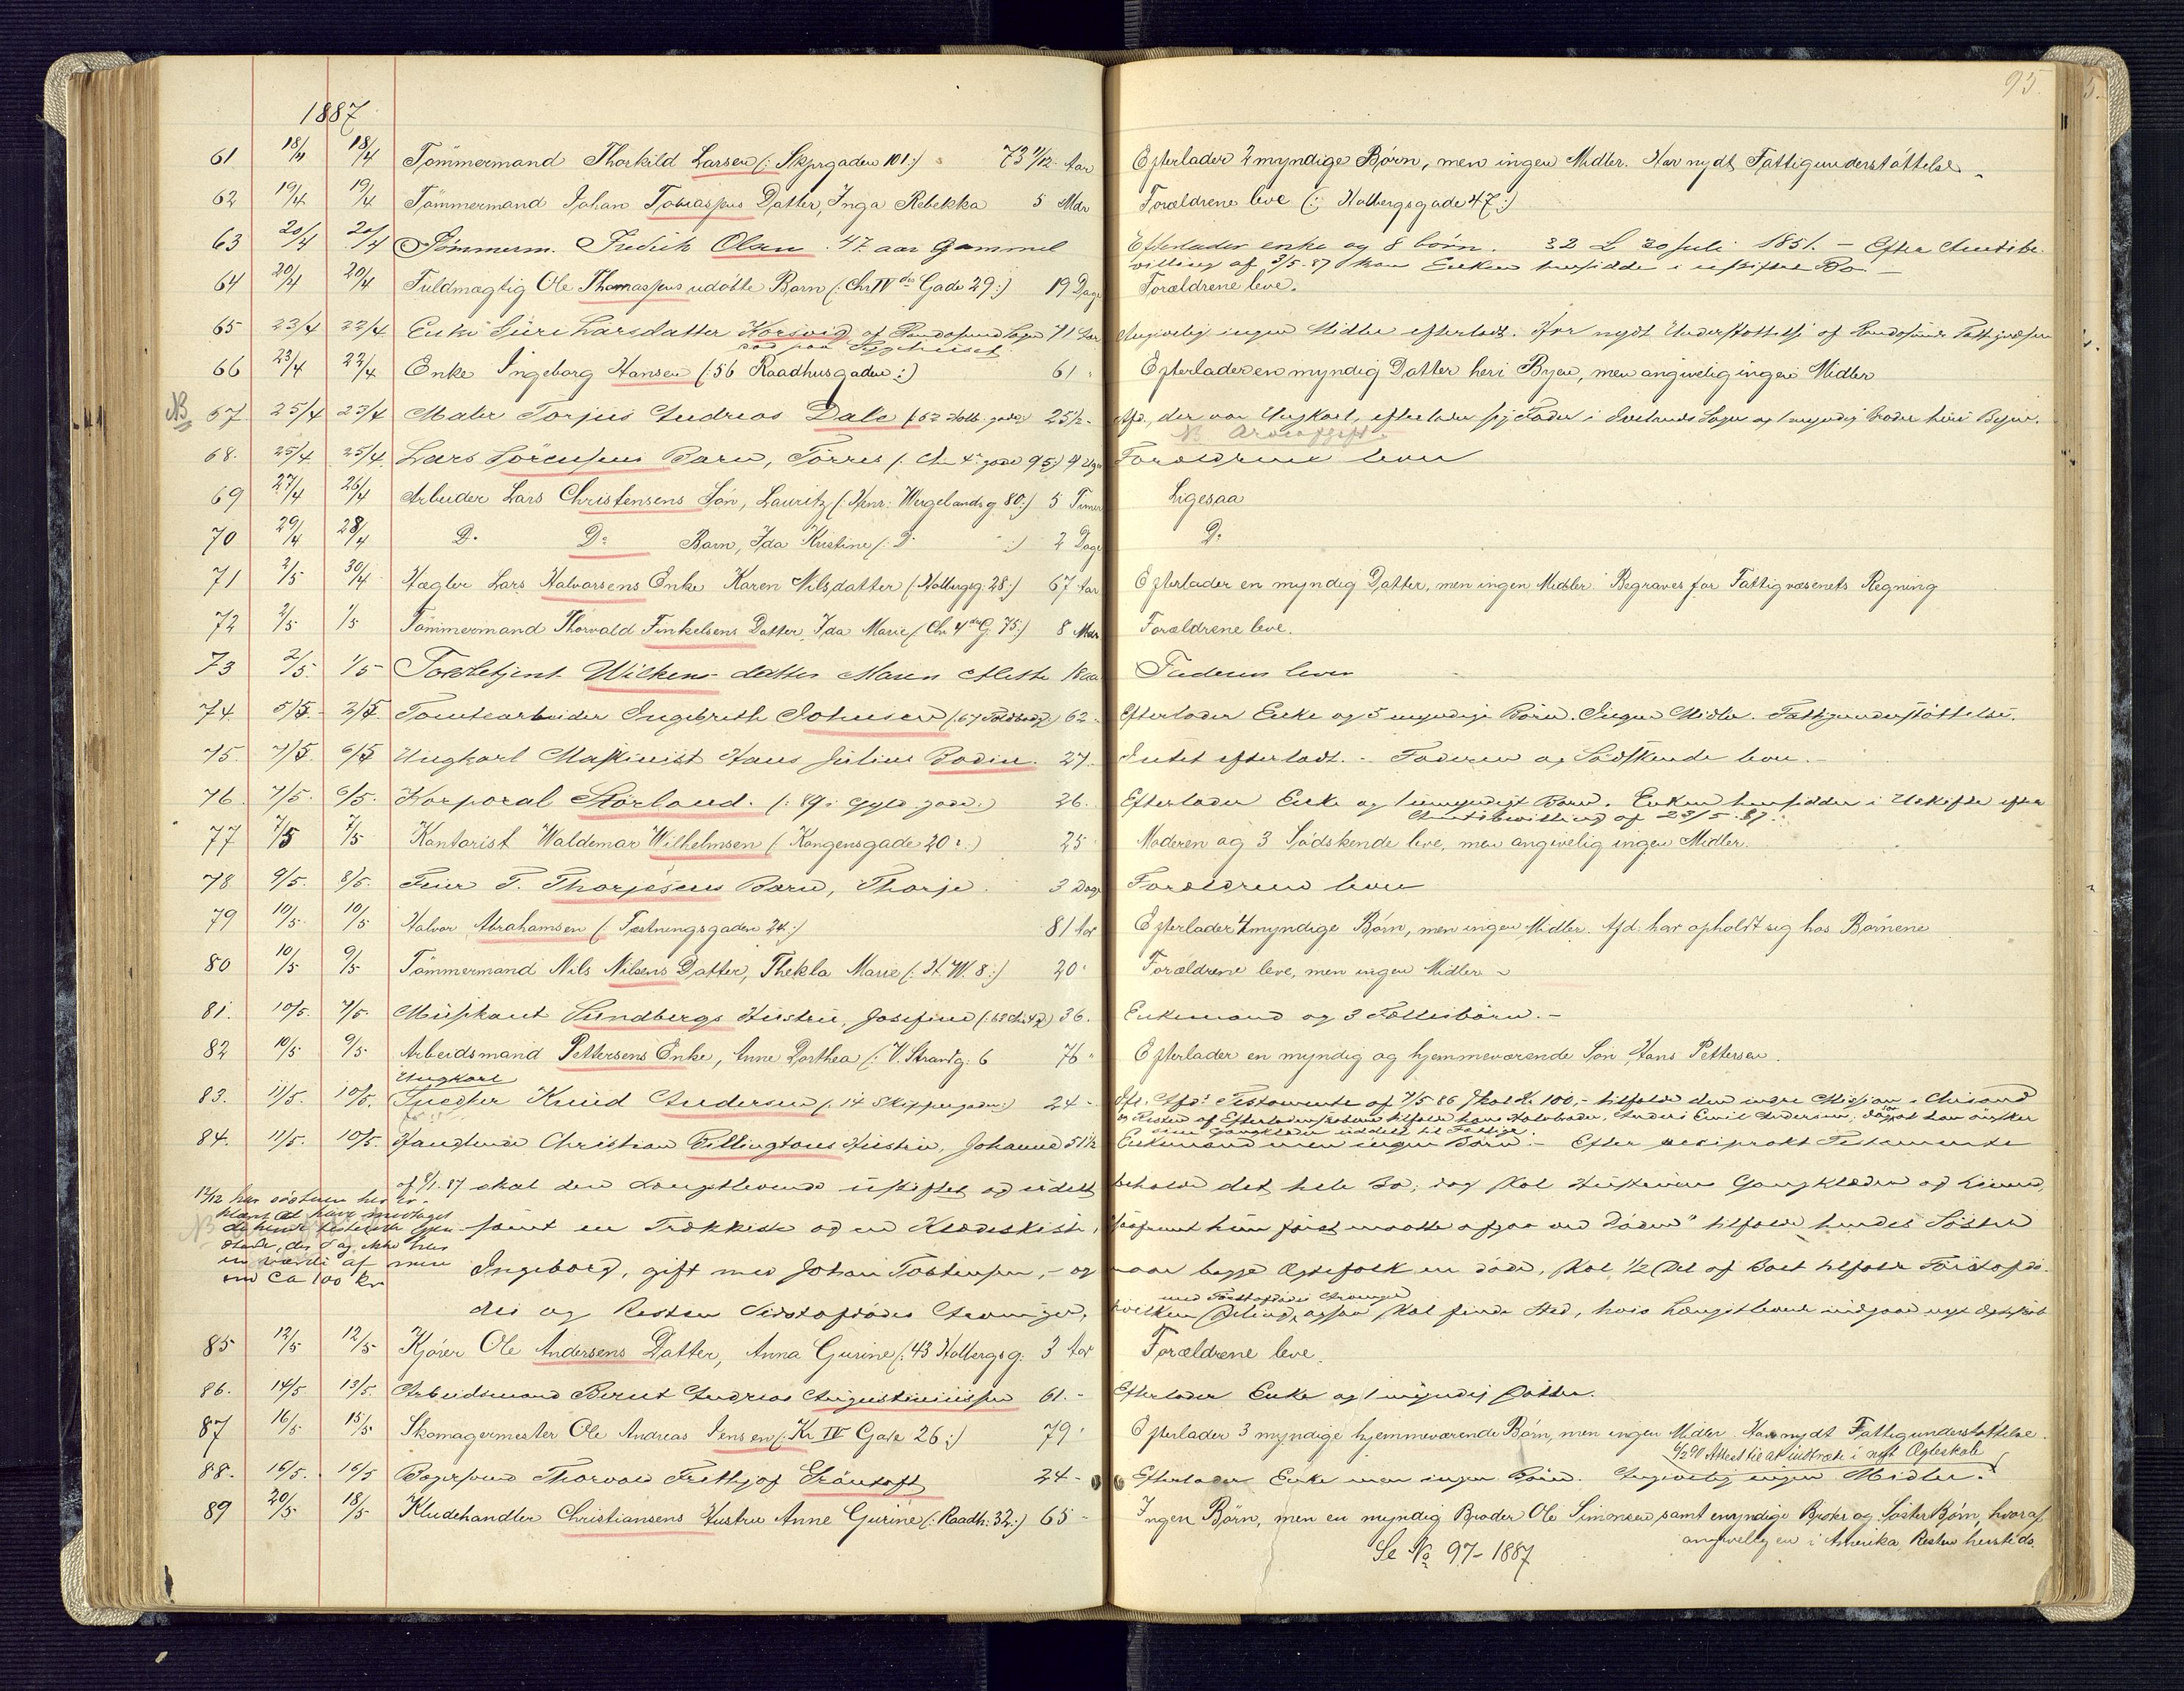 95.
1887
61 18/4 18/4 Tømmermand Thorkild Larsen (: Skprgaden 101 :) 73 11/12 Aar Efterlader 2 myndige Børn, men ingen Midler. Har nydt Fattigunderstøttelse
62 19/4 19/4 Tømmermand Johan Tobiassens Datter, Inga Rebekka 5 Mdr Forældrene leve (: Holbergsgade 47 :)
63 20/4 20/4 Tömmerm. Fredrik Olsen 47 aar gammel Efterlader enke og 8 börn. 32 L 30 Juli 1851. — Efter Amtsbe-
villing af 3/5-87 kan Enken hensidde i uskiftet Bo —
64 20/4 20/4 Fuldmægtig Ole Thomassens udöbte Barn (: Chr IV des Gade 29 :) 19 Dage Forældrene leve.
65 23/4 22/4 Enke Siri Larsdatter Korsvig af Randøsund Sogn 71 Aar Angivelig ingen Midler efterladt. Har nydt Understøttelse af Randøsunds Fattigvæsen
död paa Sygehuset
66 23/4 22/4 Enke Ingeborg Hansen (: 56 Raadhusgaden :) 61 " Efterlader en myndig Datter heri Byen, men angivelig ingen Midler
NB 67 25/4 23/4 Maler Torjus Andreas Dale (: 52 Holb. gade) 25 1/2 - Afd., der var Ungkarl, efterlader sig Fader i Ivelands Sogn og 1 myndig Broder heri Byen.
NB Arveafgift
68. 25/4 25/4 Lars Sörensens Barn, Törres (: Chr 4des gade 95) 9 Uger Forældrene lever
69 27/4 26/4 Arbeider Lars Christensens Søn, Lauritz (: Henr: Wergelandsg 80 :) 5 Timer Ligesaa
70 29/4 28/4 D: D: Barn, Ida Kristine (: D: " :) 2 Dage D:
71 2/5 30/4 Hægler Lars Halvorsens Enke Karen Nilsdatter (: Holbergsg. 28 :) 67 Aar Efterlader en myndig Datter, men ingen Midler. Begraves for Fattigvæsenets Regning
72 2/5 1/5 Tømmermand Thorvald Finkelsens Datter, Ida Marie (: Chr 4 des G. 75 :) 8 Mdr Forældrene leve.
73 2/5 1/5 Toldbetjent Wilkens datter Maren Mette 18 aar Faderen lever
74. 5/5 - 3/5 Tomtearbeider Ingebreth Johnsen (: 67 Toldbodg) 62 - Efterlader Enke og 5 myndige Börn. Ingen Midler. Fattigunderstøttelse.
75. 7/5 6/5 Ungkarl Maskinist Hans Julius Bodin. 27 - Intet efterladt. - Faderen og Södskende leve. -
76. 7/5. 6/5. Korporal Störland. (: 89: Gyld gade.) 26. Efterlader Enke og 1 umyndigt Barn. Enken hensidder i Uskifte efter
Amtsbevilling af 23/5.87.
77 7/5 7/5 Kontorist Waldemar Wilhelmsen (: Kongensgade 20 :) 25 " Moderen og 3 Sødskende leve, men angivelig ingen Midler.
78 9/5. 8/5. Feier T. Thorjesens Barn, Thorje. 3 Dage Forældrene lever
79 10/5 10/5 Halvor Abrahamsen (: Festningsgaden 24 :) 81 Aar Efterlader 4 myndige Børn, men ingen Midler. Afd. har opholdt sig hos Børnene
80 10/5 9/5 Tömmermand Nils Nilsens Datter, Thekla Marie (: H. W. 8 :) 20 " Forældrene leve, men ingen Midler -
81. 10/5. 7/5. Musikant Sundbergs Hustru, Josefine (: 63 Chr 4 g) 36. Enkemand og 3 Fællesbörn. -
82 10/5 9/5 Arbeidsmand Pettersens Enke, Anne Dorthea (: V. Strandg. 6 76 " Efterlader en myndig og hjemmeværende Søn Hans Pettersen.
Ungkarl
83. 11/5. 10/5. Snedker Knud Andersen (: 14 Skippergaden) 24 - Ifl. Afd's Testamente af 7/5 86 skal Kr. 100,- tilfalde den indre Mission i Chrsand
og Resten af Efterladenskaberne tilfalde hans Halvbroder, Anders Emil Andersen, dog at han ønsker
sine Gangklæder uddelt til Fattige.
84. 11/5. 10/5. Handlende Christian Billingtons Hustru, Johanne 51 1/2 Enkemand men ingen Börn. - Efter reciprokt Testamente
af 6/1.87 skal den Længstlevende uskiftet og udelt beholde det hele Bo, dog skal Hustruens Gangklæder og Linned,
samt en Trækkiste og en Klædeskiste, "saafremt hun først maatte afgaa ved Döden" tilfalde hendes Söster
Ingeborg, gift med Johan Tobiassen, - og naar begge Ægtefolk er döde, skal 1/2 Del af Boet tilfalde Förstafdö-
des og Resten Sidstafdödes Arvinger, hvilken Deling, ogsaa skal finde Sted, hvis Længstlevende indgaar nyt Ægteskab
med Förstafdödes Arvinger
12/12 har
om ca 100 kr
85 12/5 12/5 Kjører Ole Andersens Datter, Anna Gurine (: 43 Holbergsg. 3 Aar Forældrene leve.
86. 14/5 13/5. Arbeidsmand Bernt Andreas Augustiniussen 61. - Efterlader Enke og 1 myndig Datter.
87 16/5 15/5 Skomagermester Ole Andreas Jensen (: Kr IV Gade 26 :) 79 " Efterlader 3 myndige hjemmeværende Børn, men ingen Midler. Har nydt Fattigunderstøttelse.
6/2 90 Attest til at indtræde i nyt Ægteskab
88. 16/5. 16/5 Bogförer Thorvald Frithjof Gröntoft 24 - Efterlader Enke men ingen Börn. Angivelig ingen Midler.
89 20/5 18/5 Kludehandler Christiansens Hustru Anne Gurine (: Raadh. 32 :) 65 - Ingen Børn, men en myndig Broder Ole Simonsen samt myndige Broder og Søster Børn, hvoraf
angivelig en i Amerika Resten hersteds.
Se No 97 - 1887